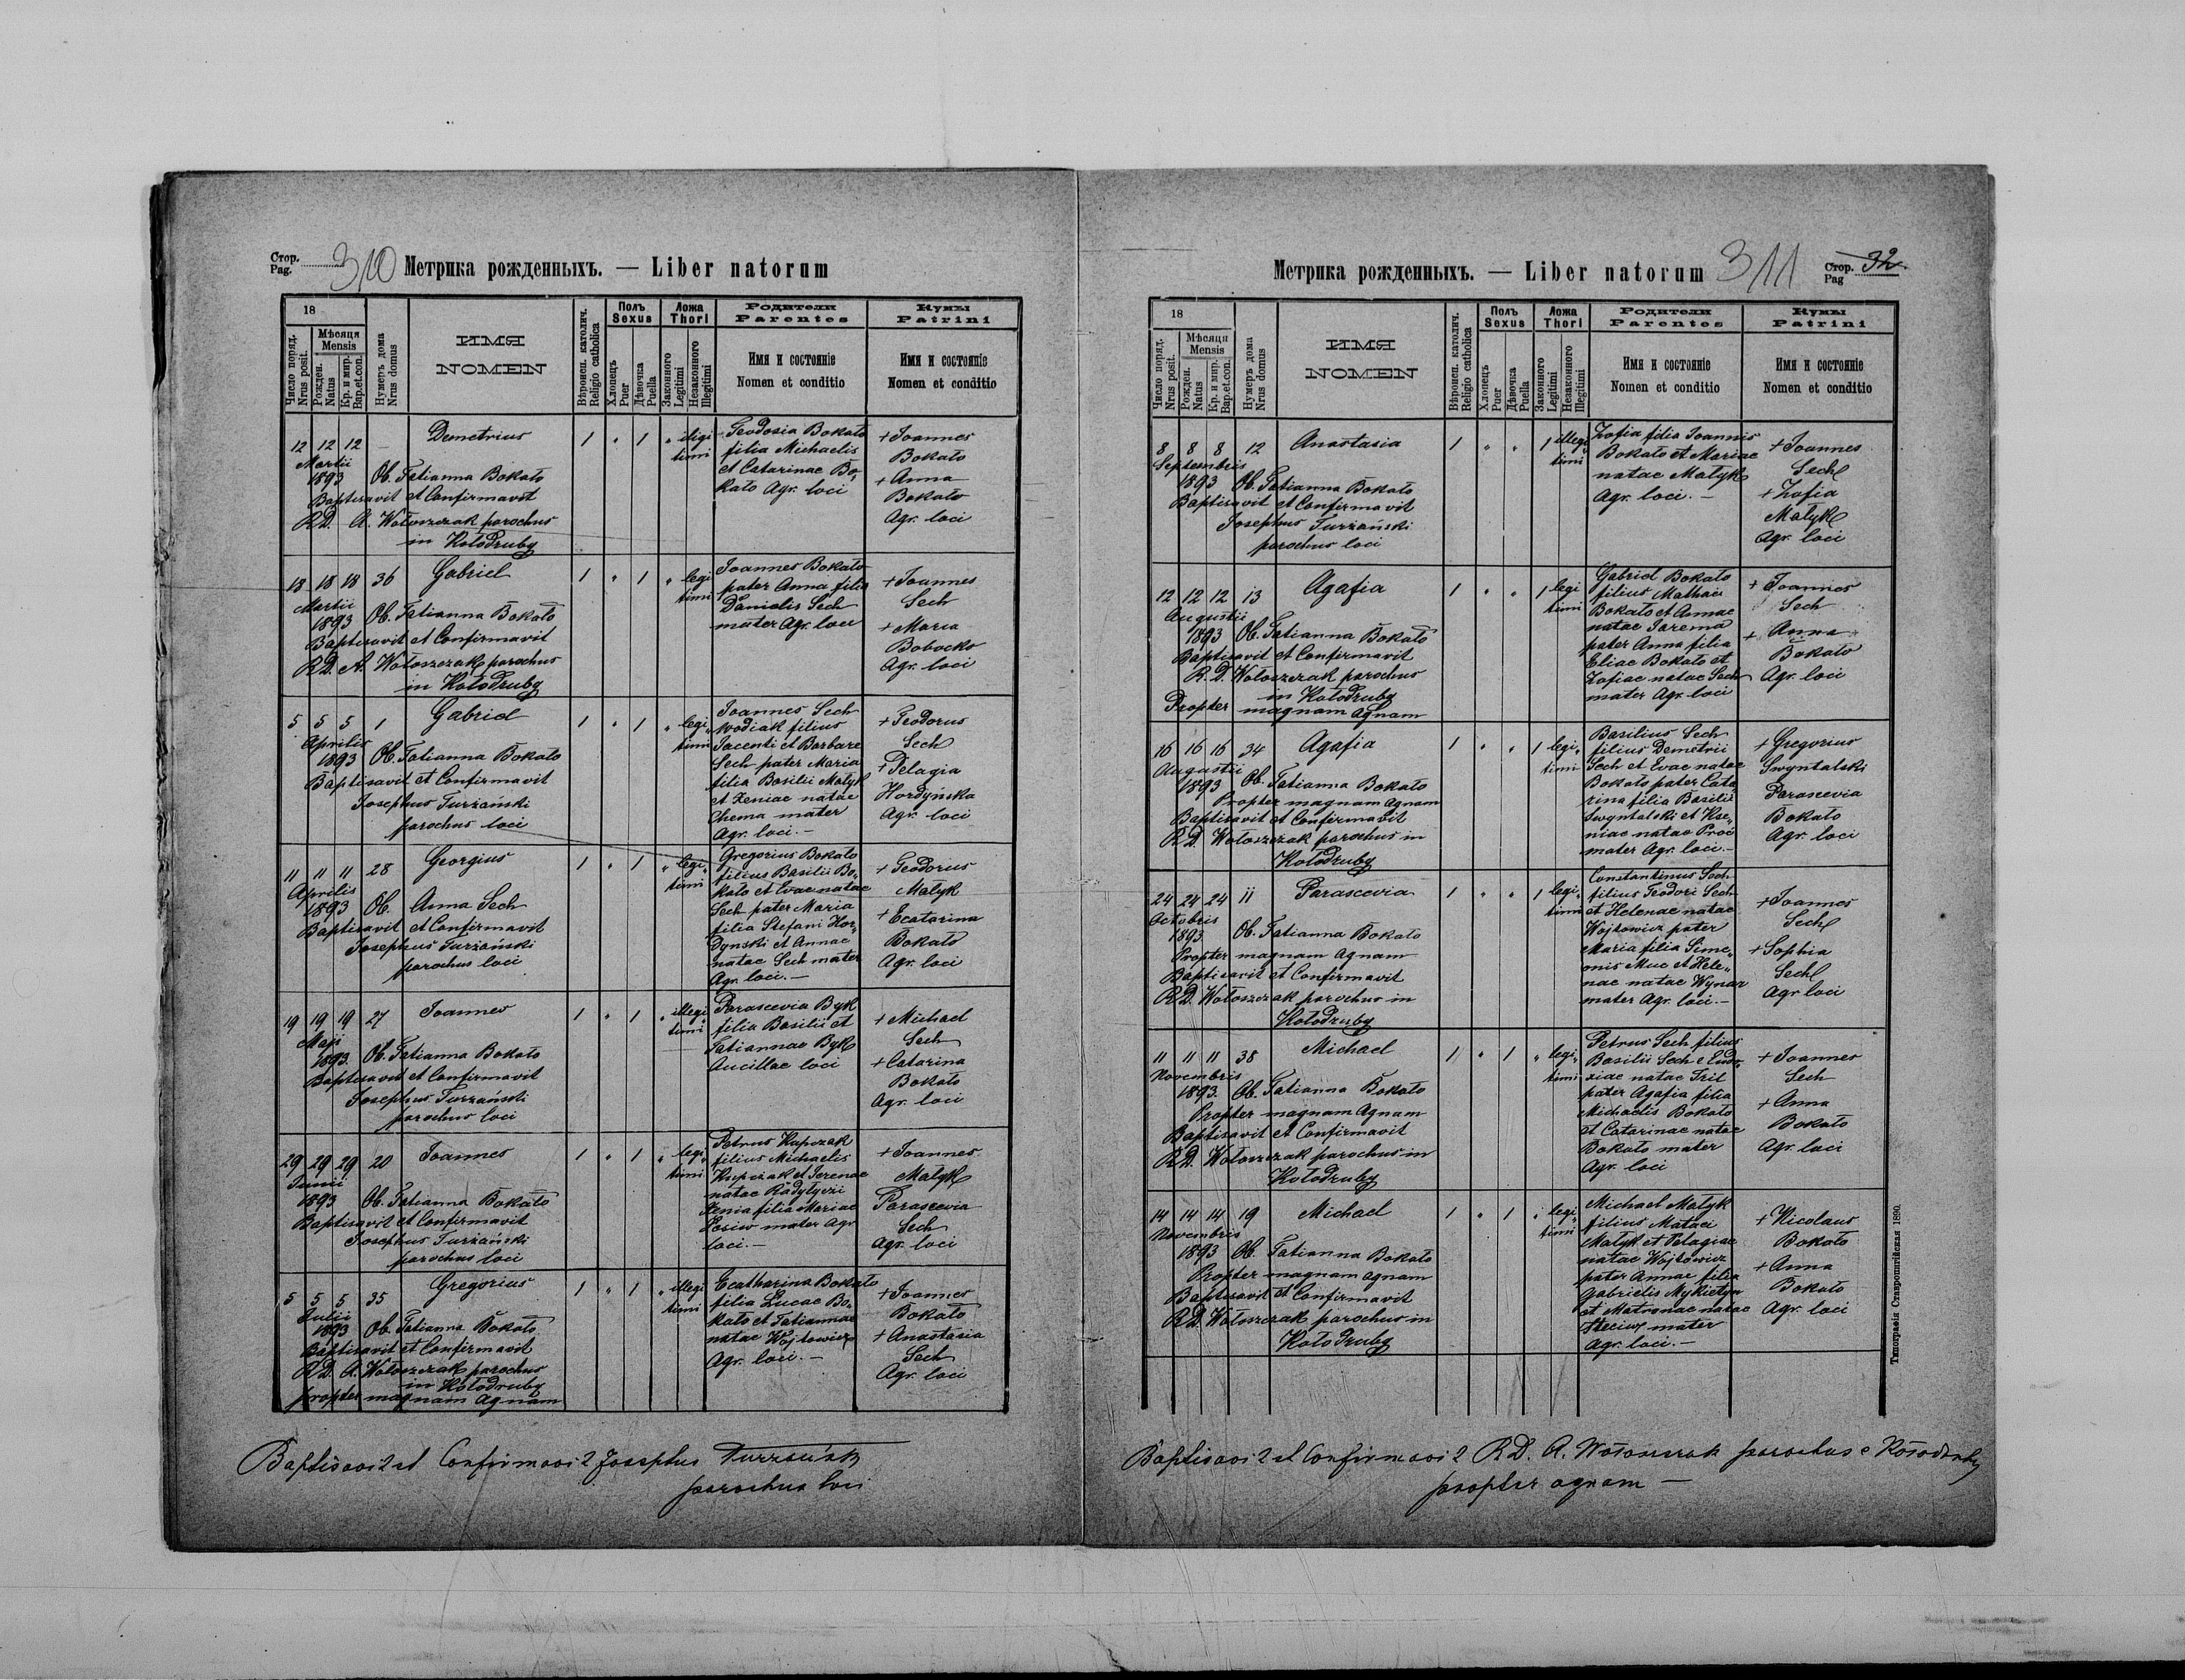 Стор.
Pag. 310 Метрика рожденныхъ. — Liber natorum
18
Мѣсяця
Mensis
Число поряд.
Nrus posit.
Рожден.
Natus
Кр. и мир.
Bap. et. con.
Нумеръ дома
Nrus domus
ИМЯ
NOMEN
Вѣроисп. католич.
Religio catholica
Полъ
Sexus
Хлопецъ
Puer
Дѣвочка
Puella
Ложа
Thori
Законного
Legitimi
Незаконного
Illegitimi
Родители
Parentes
Имя и состояніе
Nomen et conditio
Кумы
Patrini
Имя и состояніе
Nomen et conditio
12 12 12 — Demetrius 1 " 1 " illegi
timi
Martii
1893 Ob. Tatianna Bokało
Baptisavit et Confirmavit
RD. A. Wołoszczak parochus
in Kołodruby
Teodosia Bokało
filia Michaelis
et Catarinae Bo-
kało Agr. loci
+ Joannes
Bokało
+ Anna
Bokało
Agr. loci
18 18 18 36 Gabriel 1 " 1 " legi
timi
Martii
1893 Ob. Tatianna Bokało
Baptisavit et Confirmavit
RD. A. Wołoszczak parochus
in Kołodruby
Joannes Bokało
pater Anna filia
Danielis Sech
mater Agr. loci
+ Joannes
Sech
+ Maria
Bobocko
Agr. loci
5 5 5 1 Gabriel 1 " 1 " legi
timi
Aprilis
1893 Ob. Tatianna Bokało
Baptisavit et Confirmavit
Josephus Turzański
parochus loci
Joannes Sech
Wodiak filius
Jacenti et Barbare
Sech pater Maria
filia Basilii Matyk
et Xeniae natae
Chema mater
Agr. loci. —
+ Teodorus
Sech
+ Pelagia
Hordyńska
Agr. loci
11 11 11 28 Georgius 1 " 1 " legi
timi
Aprilis
1893 Ob. Anna Sech
Baptisavit et Confirmavit
Josephus Turzański
parochus loci
Gregorius Bokało
filius Basilii Bo-
kało et Evae natae
Sech pater Maria
filia Stefani Hor-
dynski et Annae
natae Sech mater
Agr. loci. —
+ Teodorus
Matyk
+ Ecatarina
Bokało
Agr. loci
19 19 19 27 Joannes 1 " 1 " illegi
timi
Maji
1893. Ob. Tatianna Bokało
Baptisavit et Confirmavit
Josephus Turzański
parochus loci
Parascevia Byk
filia Basilii et
Tatiannae Byk
Aucillae loci
+ Michael
Sech
+ Catarina
Bokało
Agr. loci
29 29 29 20 Joannes 1 " 1 " legi
timi
Junii
1893 Ob. Tatianna Bokało
Baptisavit et Confirmavit
Josephus Turzański
parochus loci
Petrus Kupczak
filius Michaelis
Kupczak et
natae
Xenia filia Mariae
mater Agr
loci. —
+ Joannes
Matyk
Parascevia
Sech
Agr. loci
5 5 5 35 Gregorius 1 " 1 " illegi
timi
Julii
1893 Ob. Tatianna Bokało
Baptisavit et Confirmavit
RD. A. Wołoszczak parochus
in Kołodruby
propter magnam Agnam
Ecatharina Bokało
filia Lucae Bo-
kało et Tatiannae
natae Wojtowicz
Agr. loci. —
+ Joannes
Bokało
+ Anastasia
Sech
Agr. loci
Baptisavit et Confirmavit Josephus Turzański
parochus loci
Метрика рожденныхъ. — Liber natorum 311 Стор.
Pag 32
18
Мѣсяця
Mensis
Число поряд.
Nrus posit.
Рожден.
Natus
Кр. и мир.
Bap. et. con.
Нумеръ дома
Nrus domus
ИМЯ
NOMEN
Вѣроисп. католич.
Religio catholica
Полъ
Sexus
Хлопецъ
Puer
Дѣвочка
Puella
Ложа
Thori
Законного
Legitimi
Незаконного
Illegitimi
Родители
Parentes
Имя и состояніе
Nomen et conditio
Кумы
Patrini
Имя и состояніе
Nomen et conditio
8 8 8 12 Anastasia 1 " " 1 illegi
timi
Septembris
1893 Ob. Tatianna Bokało
Baptisavit et Confirmavit
Josephus Turzański
parochus loci
Zofia filia Joannis
Bokało et Mariae
natae Matyk
Agr. loci. —
+ Joannes
Sech
+ Zofia
Matyk
Agr. loci
12 12 12 13 Agafia 1 " " 1 legi
timi
Augustii
1893 Ob. Tatianna Bokało
Baptisavit et Confirmavit
R.D. Wołoszczak parochus
in Kołodruby
Propter magnam Agnam
Gabriel Bokało
filius Mathaei
Bokało et Annae
natae Jarema
pater Anna filia
Eliae Bokało et
Zofiae natae Sech
mater Agr. loci
+ Joannes
Sech
+ Anna
Bokało
Agr. loci
16 16 16 34 Agafia 1 " " 1 legi
timi
Augustii
1893 Ob. Tatianna Bokało
Propter magnam Agnam
Baptisavit et Confirmavit
RD. Wołoszczak parochus in
Kołodruby
Basilius Sech
filius Demetrii
Sech et Evae natae
Bokało pater Cata-
rina filia Basilii
Swyntalski et Xse-
niae natae Proć
mater Agr. loci. —
+ Gregorius
Swyntalski
Parascevia
Bokało
Agr. loci
24 24 24 11 Parascevia 1 " " 1 legi
timi
Octobris
1893. Ob. Tatianna Bokało
Propter magnam Agnam
Baptisavit et Confirmavit
RD. Wołoszczak parochus in
Kołodruby
Constantinus Sech
filius Teodori Sech
et Helenae natae
Wojtowicz pater
Maria filia Sime-
onis Muc et Hele-
nae natae Wynar
mater Agr. loci. —
+ Joannes
Sech
+ Sophia
Sech
Agr loci
11 11 11 38 Michael 1 " 1 " legi
timi
Novembris
1893. Ob. Tatianna Bokało
Propter magnam Agnam
Baptisavit et Confirmavit
RD. Wołoszczak parochus in
Kołodruby
Petrus Sech filius
Basilii Sech e Eudo-
xiae natae Tril
pater Agafia filia
Michaelis Bokało
et Catarinae natae
Bokało mater
Agr. loci
+ Joannes
Sech
+ Anna
Bokało
Agr. loci
14 14 14 19 Michael 1 " 1 " legi
timi
Novembris
1893 Ob. Tatianna Bokało
Propter magnam Agnam
Baptisavit et Confirmavit
RD. Wołoszczak parochus in
Kołodruby
Michael Matyk
filius Mataei
Matyk et Pelagiae
natae Wojtowicz
pater Annae filia
Gabrielis Mykietyn
et Matronae natae
Steciuk mater
Agr. loci. —
+ Nicolaus
Bokało
+ Anna
Bokało
Agr. loci
Типографія Ставропигійская 1890.
Baptisavit et Confirmavit RD. A. Wołoszczak parochus e Kołodruby
propter agnam —